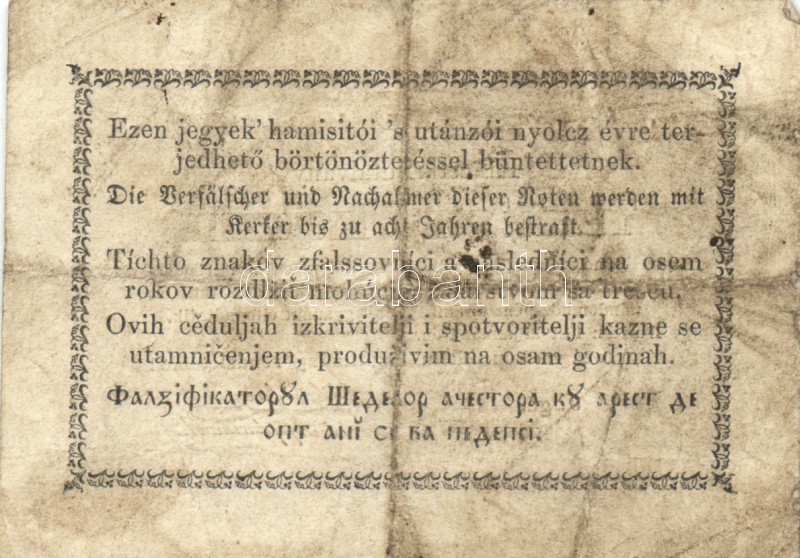 Ezen jegyek’ hamisitói ’s utánzói nyolcz évre ter-
jedhető börtönöztetéssel büntettetnek.
Die Verfälscher und Nachahmer dieser Noten werden mit
Kerker bis zu acht Jahren bestraft.
Tíchto znakov zfalssovníci a následníci na osem
rokov
Ovih cěduljah izkrivitelji i spotvoritelji kazne se
utamničenjem, produživim na osam godinah.
darabanth
Фалꙃіфікаторꙋл Шеделор ачестора кꙋ арест де
опт анĭ се ва педепсі.